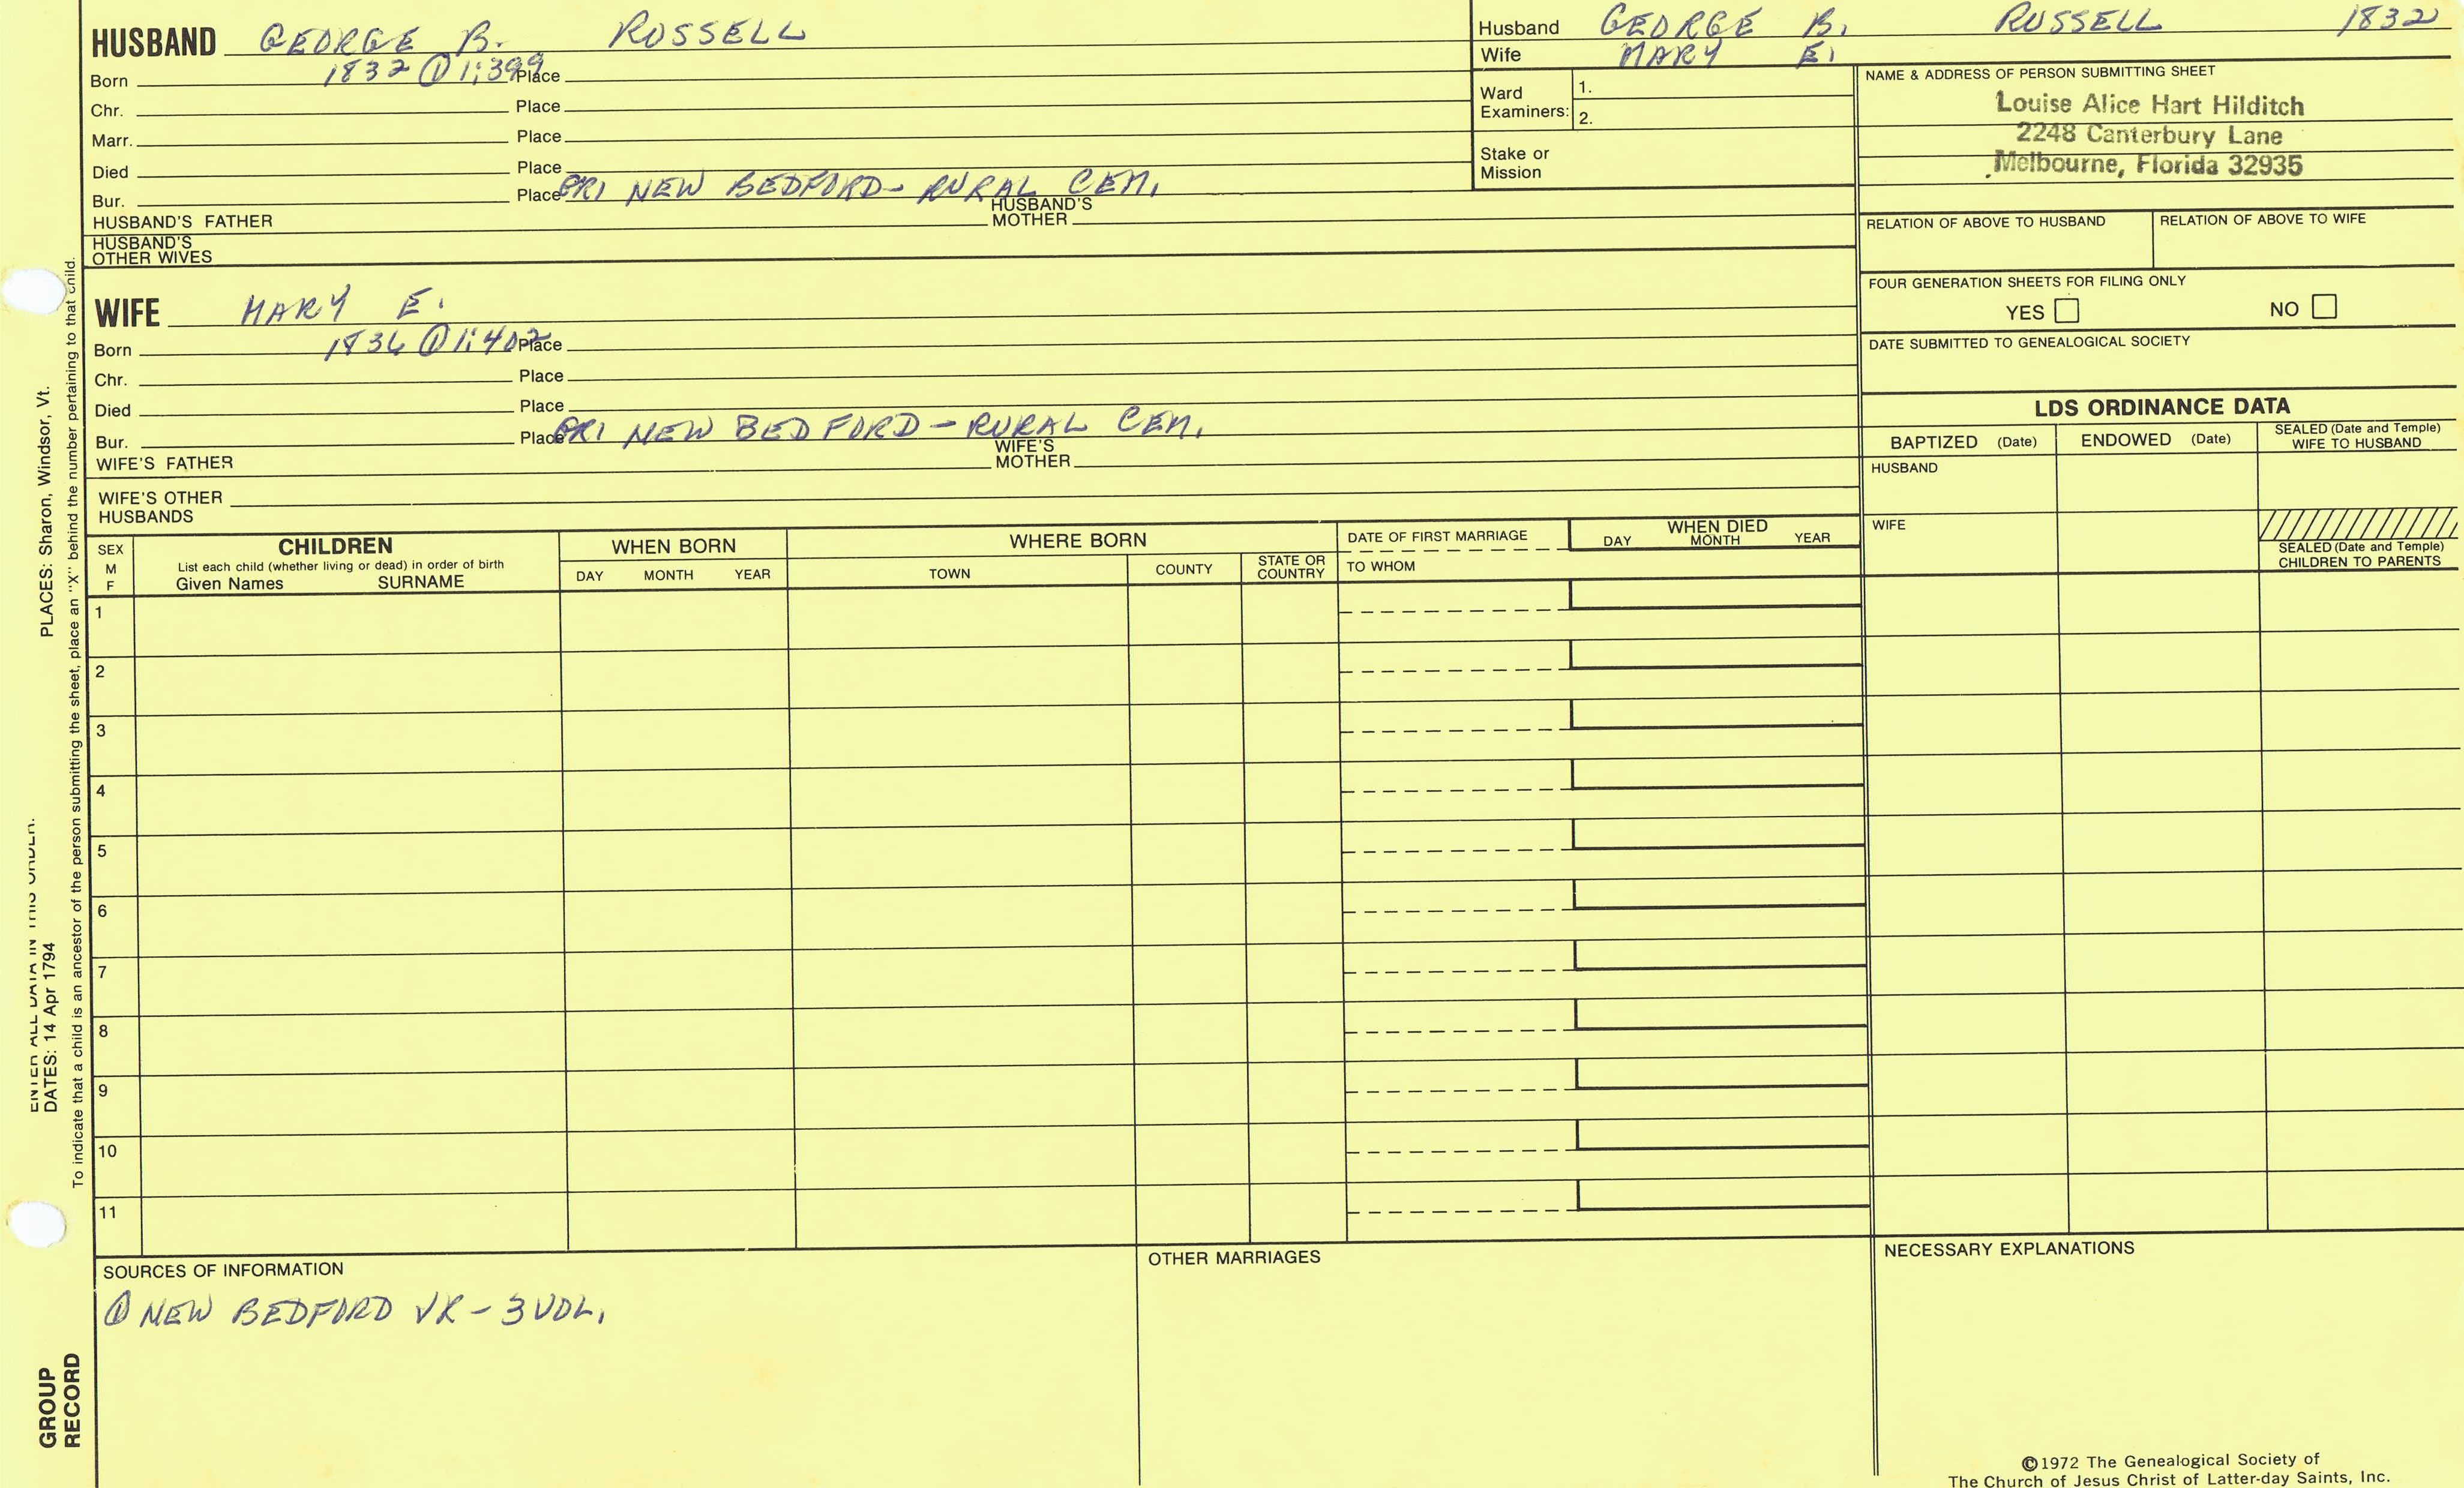 HUSBAND GEORGE B. RUSSELL
Born 1832 ① 1:399 Place
Chr. Place
Marr. Place
Died Place
Bur. Place GR1 NEW BEDFORD - RURAL CEM.
HUSBAND'S FATHER HUSBAND'S MOTHER
HUSBAND'S OTHER WIVES
Husband GEORGE B. RUSSELL 1832
Wife MARY E.
Ward Examiners: 1.
2.
Stake or Mission
NAME & ADDRESS OF PERSON SUBMITTING SHEET
Louise Alice Hart Hilditch
2248 Canterbury Lane
Melbourne, Florida 32935
RELATION OF ABOVE TO HUSBAND RELATION OF ABOVE TO WIFE
FOUR GENERATION SHEETS FOR FILING ONLY
YES NO
DATE SUBMITTED TO GENEALOGICAL SOCIETY
WIFE MARY E.
Born 1836 ① 1:402 Place
Chr. Place
Died Place
Bur. Place GR1 NEW BEDFORD - RURAL CEM.
WIFE'S FATHER WIFE'S MOTHER
WIFE'S OTHER HUSBANDS
LDS ORDINANCE DATA
BAPTIZED (Date) ENDOWED (Date) SEALED (Date and Temple) WIFE TO HUSBAND
HUSBAND
WIFE
SEALED (Date and Temple) CHILDREN TO PARENTS
SEX M F
CHILDREN
List each child (whether living or dead) in order of birth
Given Names SURNAME
WHEN BORN
DAY MONTH YEAR
WHERE BORN
TOWN COUNTY STATE OR COUNTRY
DATE OF FIRST MARRIAGE
TO WHOM
WHEN DIED
DAY MONTH YEAR
1
2
3
4
5
6
7
8
9
10
11
SOURCES OF INFORMATION
① NEW BEDFORD VR - 3 VOL.
OTHER MARRIAGES
NECESSARY EXPLANATIONS
©1972 The Genealogical Society of
The Church of Jesus Christ of Latter-day Saints, Inc.
ENTER ALL DATA IN THIS ORDER:
DATES: 14 Apr 1794 PLACES: Sharon, Windsor, Vt.
To indicate that a child is an ancestor of the person submitting the sheet, place an "X" behind the number pertaining to that child.
GROUP
RECORD